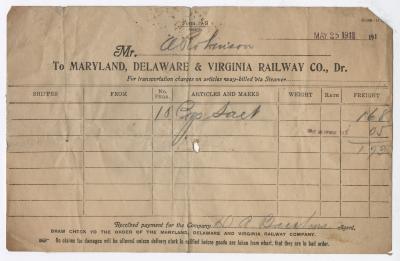 Form A8
MAY 25 1911 191
Mr. A Robinson
To MARYLAND, DELAWARE & VIRGINIA RAILWAY CO., Dr.
For transportation charges on articles way-billed via Steamer
SHIPPER FROM No. PKGS. ARTICLES AND MARKS WEIGHT RATE FREIGHT
18 Bgs Salt 168
05
173
Received payment for the Company, Agent.
DRAW CHECK TO THE ORDER OF THE MARYLAND, DELAWARE AND VIRGINIA RAILWAY COMPANY.
No claims for damages will be allowed unless delivery clerk is notified before goods are taken from wharf, that they are in bad order.